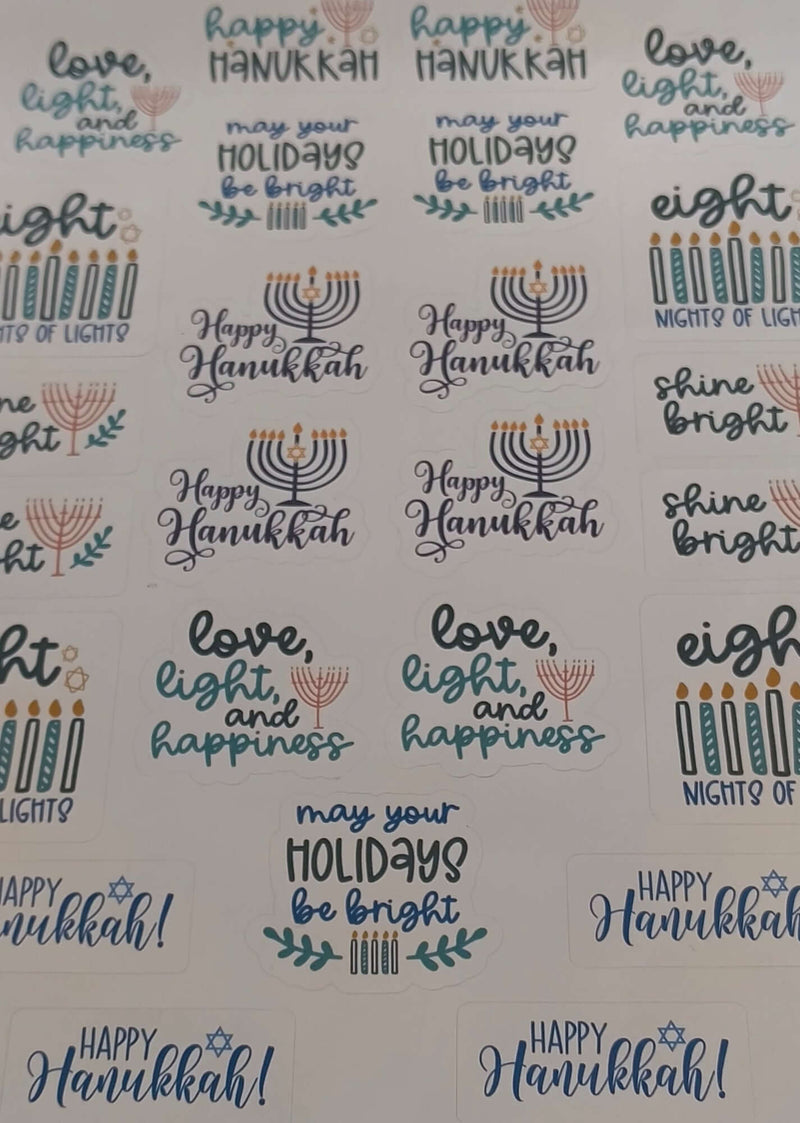 happy
HANUKKAH
happy
HANUKKAH
love,
light,
and
happiness
love,
light,
and
happiness
may your
HOLIDAYS
be bright
may your
HOLIDAYS
be bright
ight
TS OF LIGHTS
eight
NIGHTS OF LIGH
Happy
Hanukkah
Happy
Hanukkah
ne
ght
shine
bright
Happy
Hanukkah
Happy
Hanukkah
e
ht
shine
bright
ht
LIGHTS
love,
light,
and
happiness
love,
light,
and
happiness
eigh
NIGHTS OF
may your
HOLIDAYS
be bright
HAPPY
anukkah!
HAPPY
Hanukkah
HAPPY
Hanukkah!
HAPPY
Hanukkah!